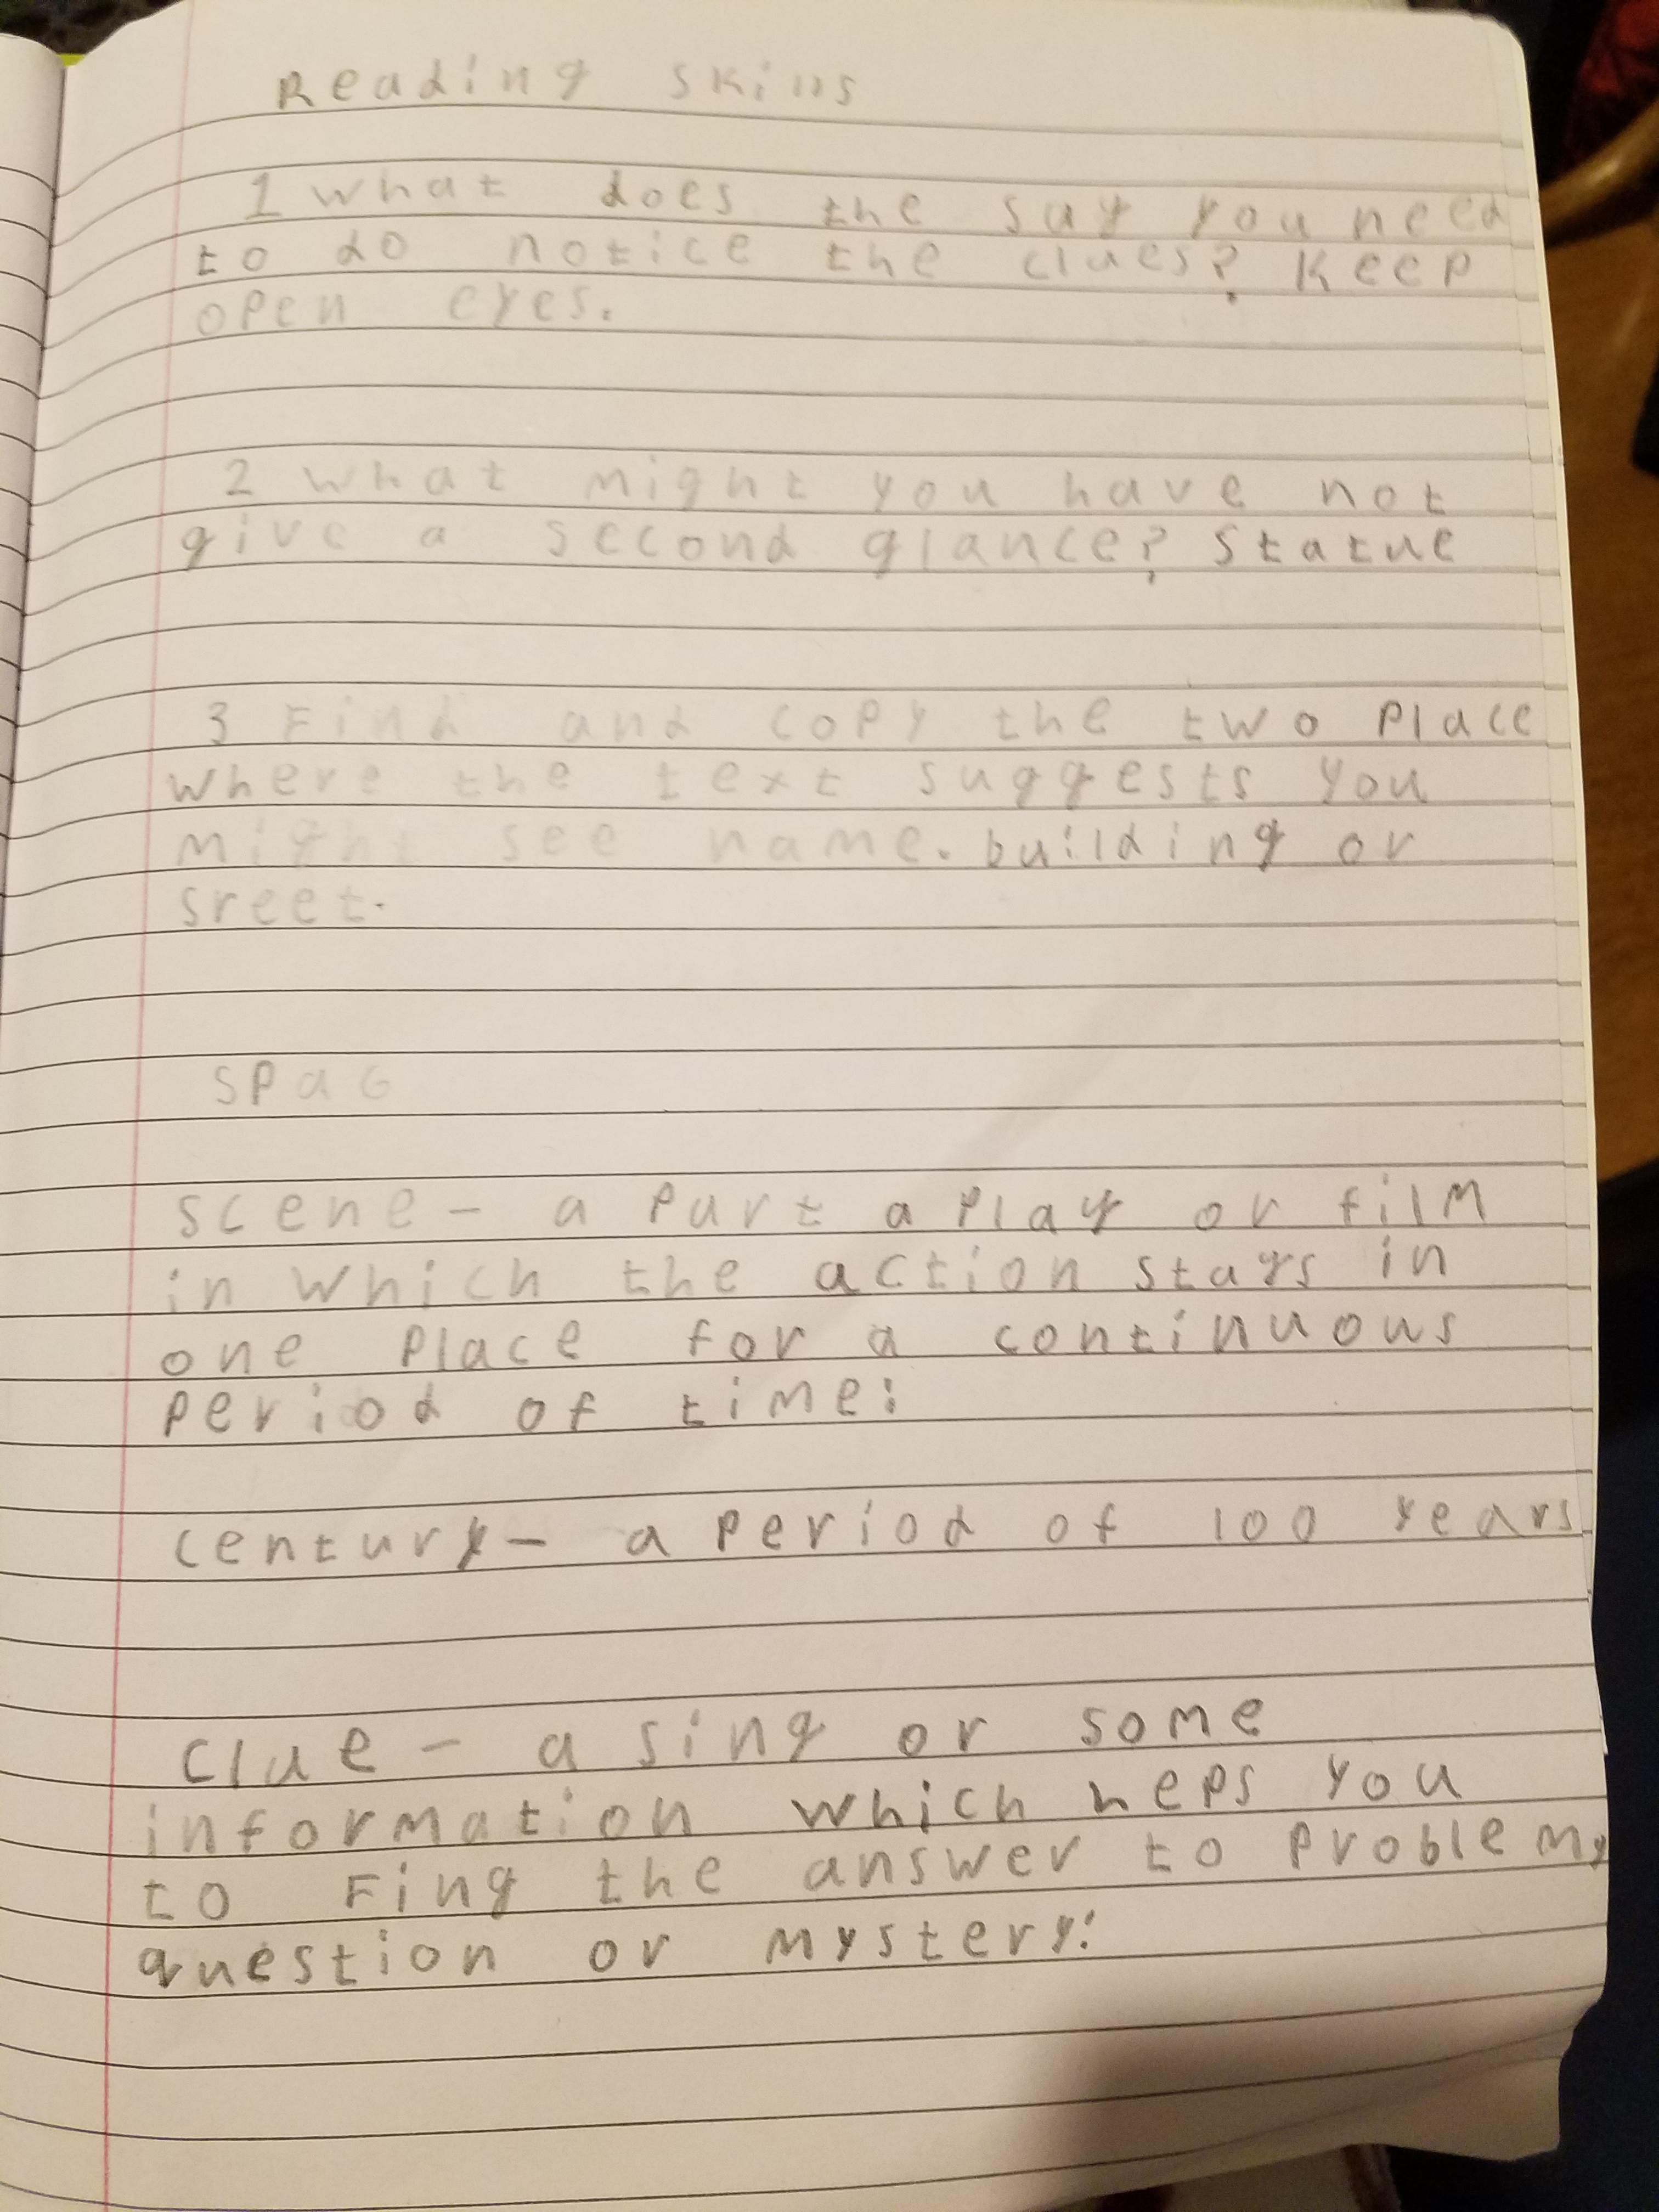 Reading skills
1 what does the say you need
to do notice the clues? Keep
open eyes.
2 what might you have not
give a second glance? Statue
3 Find and copy the two place
where the text suggests you
might see name. building or
sreet.
SPaG
scene - a part a play or film
in which the action stays in
one place for a continuous
period of time:
century - a period of 100 years
clue - a sing or some
information which heps you
to Fing the answer to problem,
question or mystery: